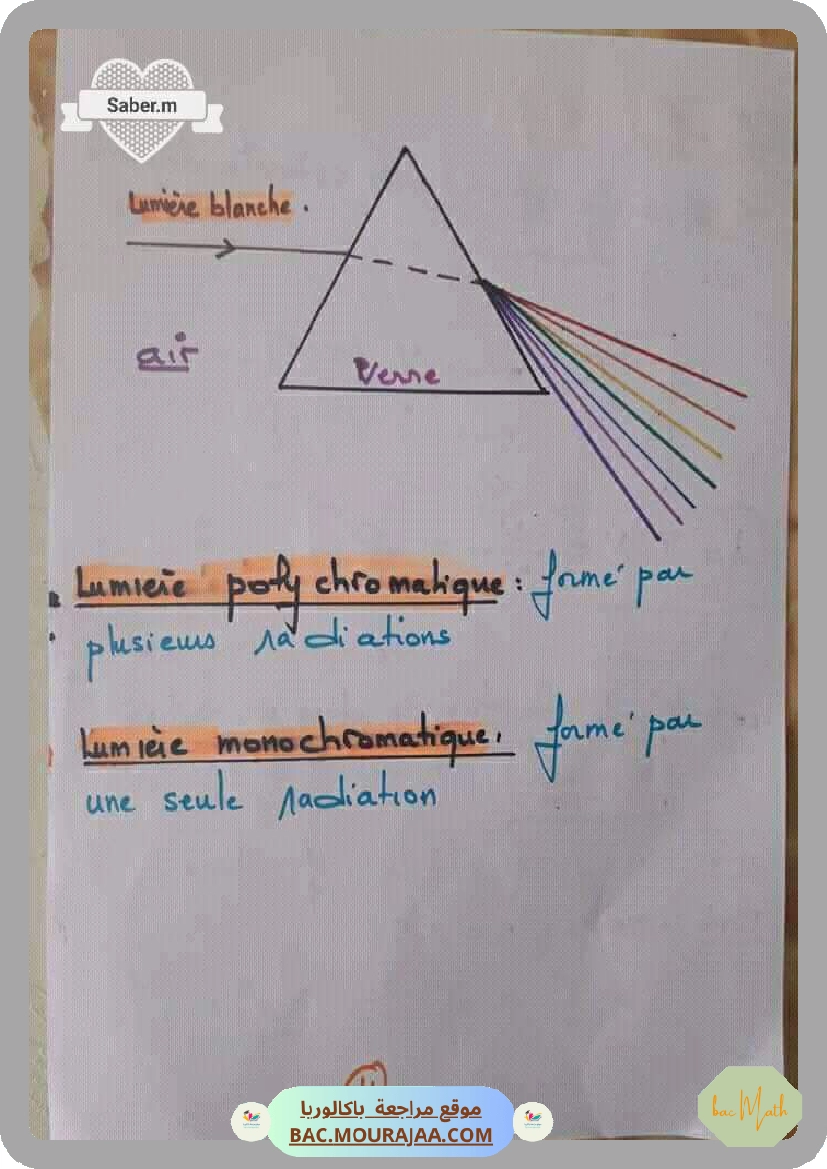 Saber.m
Lumière blanche.
air
Verre
Lumiere polychromatique: formé par
plusieurs radiations
Lumière monochromatique. formé par
une seule radiation
موقع مراجعة باكالوريا
BAC.MOURAJAA.COM
bac Math